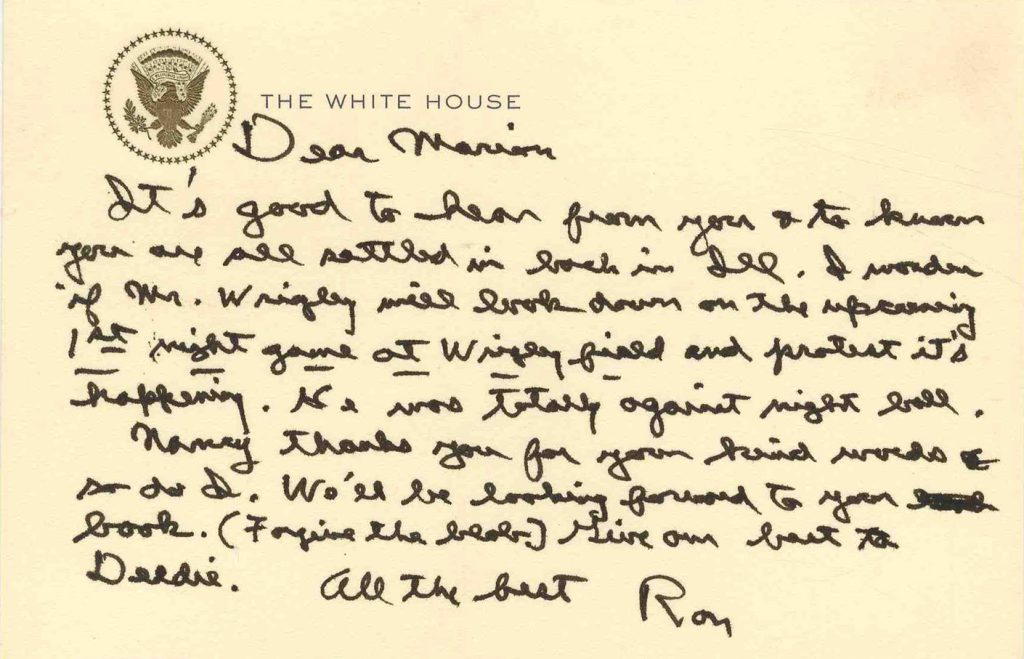 THE WHITE HOUSE
Dear Marion
It's good to hear from you & to know
you are all settled in back in Ill. I wonder
if Mr. Wrigley will look down on the upcoming
1st night game at Wrigley field and protest it's
happening. He was totally against night ball.
Nancy thanks you for your kind words &
so do I. We'll be looking forward to your
book. (Forgive the blob.) Give our best to
Deedie. All the best Ron